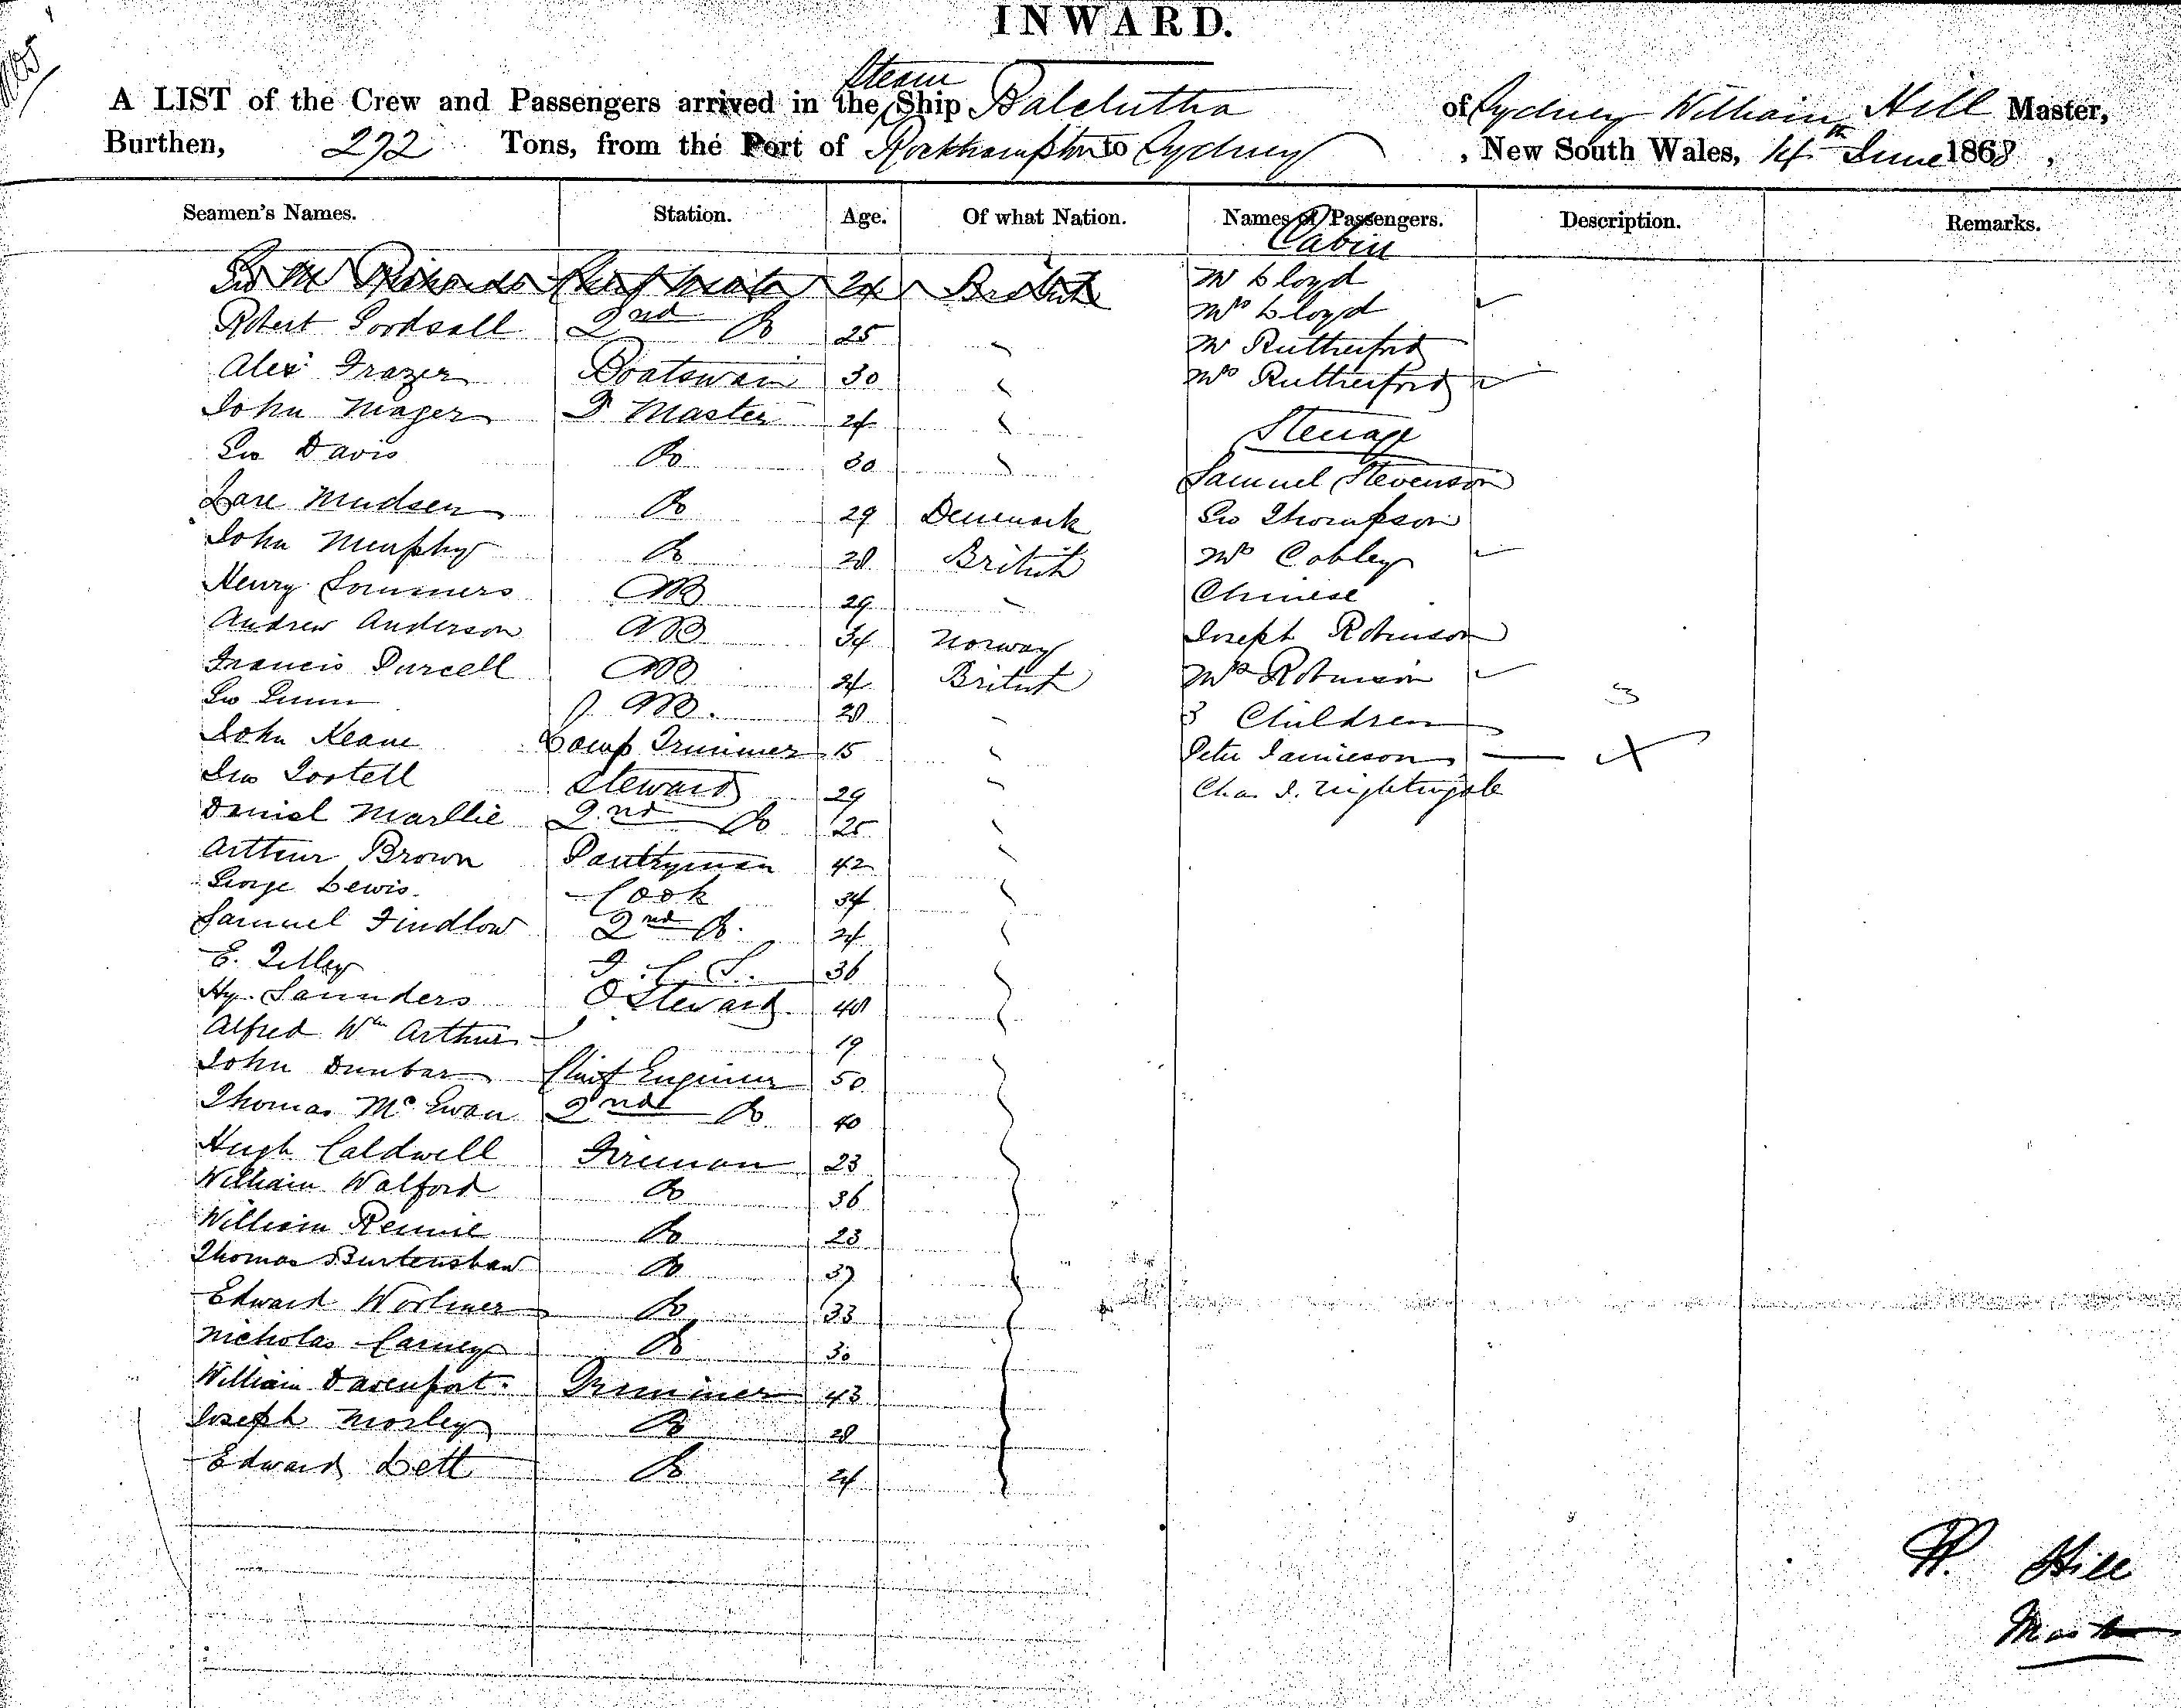 INWARD.
A LIST of the Crew and Passengers arrived in the Steam Ship Balclutha of Sydney William Hill Master,
Burthen, 272 Tons, from the Port of Rockhampton to Sydney , New South Wales, 14th June 1868 ,
Seamen's Names. Station. Age. Of what Nation. Names of Passengers. Description. Remarks.
Cabin
Chief Mate 24 British Mr Lloyd
Robert 2nd Do 25 Mrs Lloyd
Mr Rutherford
Alexr Frazer Boatswain 30 Mrs Rutherford
John Mager Q Master 24
Steerage
Geo Davis Do 30 Samuel Stevenson
Mudsen Do 29 Denmark Geo Thompson
John Murphy Do 28 British Mrs Cobley
Henry Sommers AB 29 Chinese
Andrew Anderson AB 34 Norway Joseph Robinson
Francis Purcell AB 24 British Mrs Robinson
Geo Gunn AB. 28 3 Children 3
John Keane Lamp Trimmer 15 Peter Jamieson
Geo Steward 29 Chas Nightingale
Daniel 2nd Do 25
Arthur Brown Pantryman 42
George Lewis Cook 34
Samuel Findlow 2nd Do. 24
E. 36
Hy. Saunders Steward 40
Alfred Wm Arthur 19
John Dunbar Chief Engineer 50
Thomas McEwan 2nd Do 40
Hugh Caldwell Fireman 23
William Walford Do 36
William Rennie Do 23
Thomas Burtenshaw Do 37
Edward Do 33
Nicholas Carney Do 30
William Davenport Trimmer 43
Joseph Morley Do 28
Edward Lett Do 24
W. Hill
Master